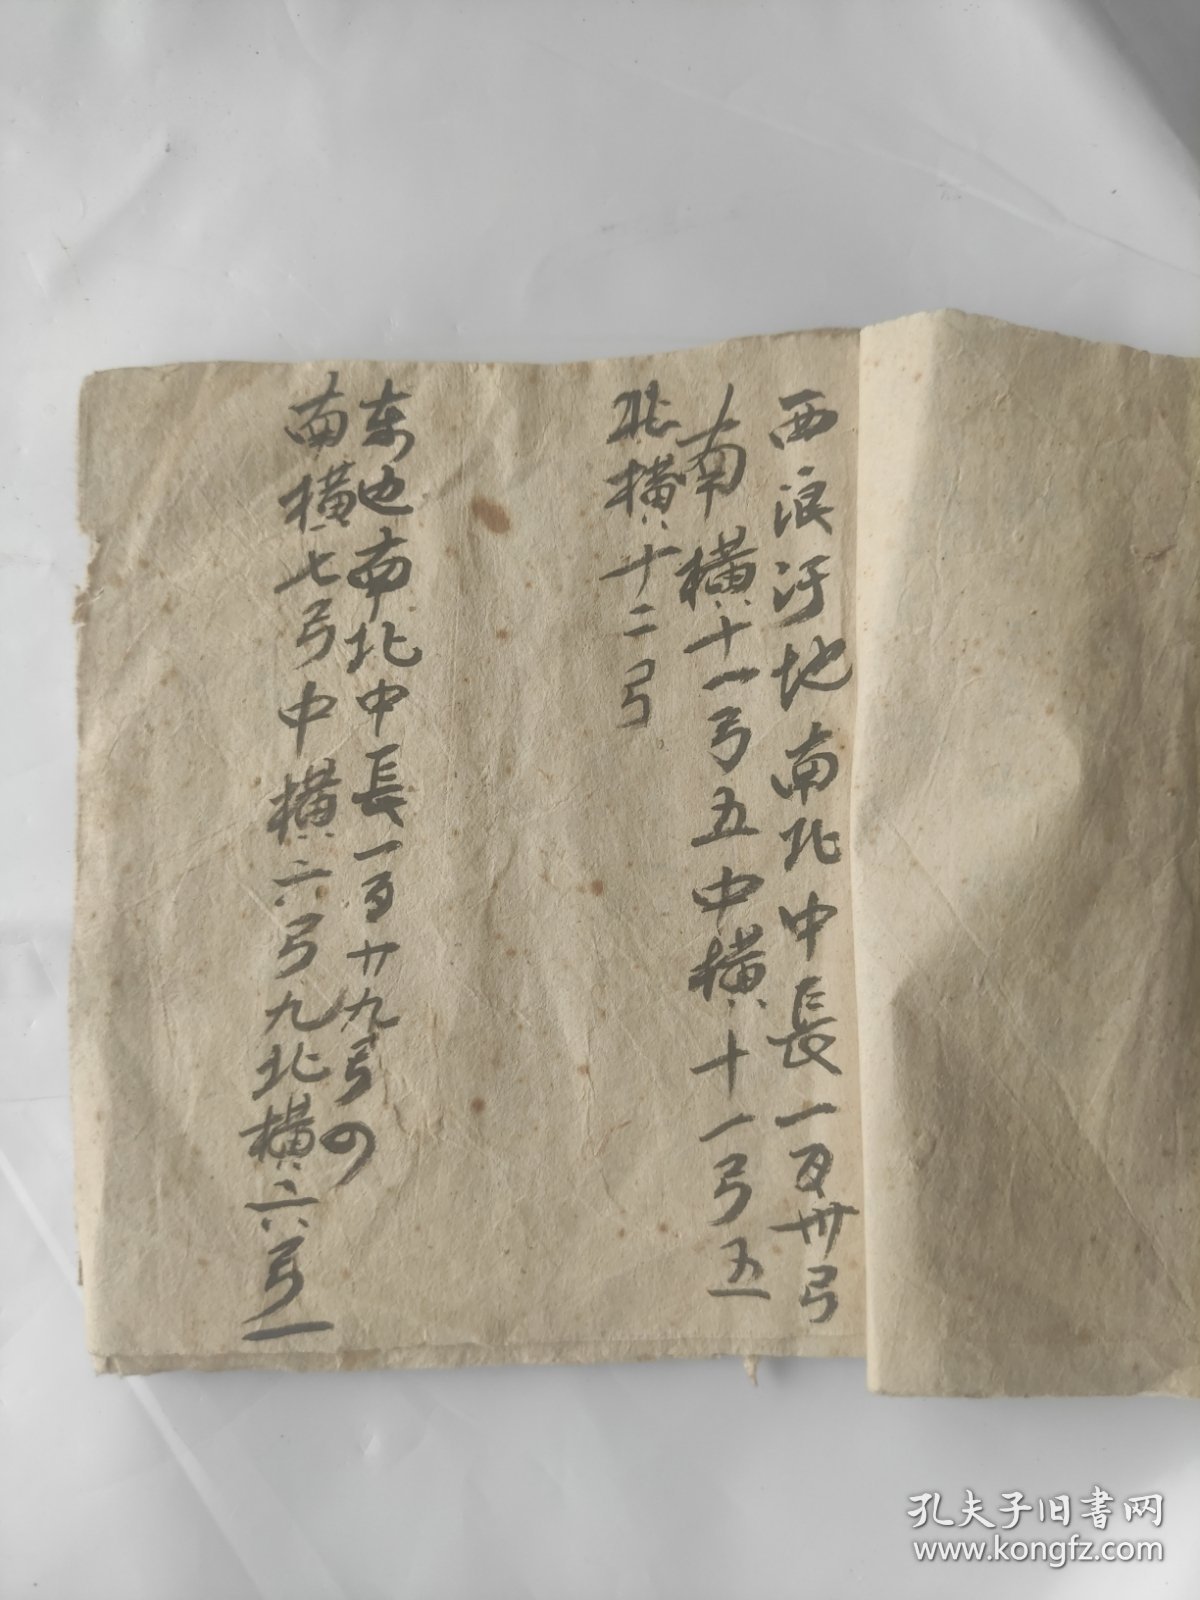 西浪河地南北中長一百卅弓
南橫十一弓五中橫十一弓五
北橫十二弓
东边南北中長一百廿九弓四
南橫七弓中橫六弓九北橫六弓一
孔夫子旧书网
www.kongfz.com